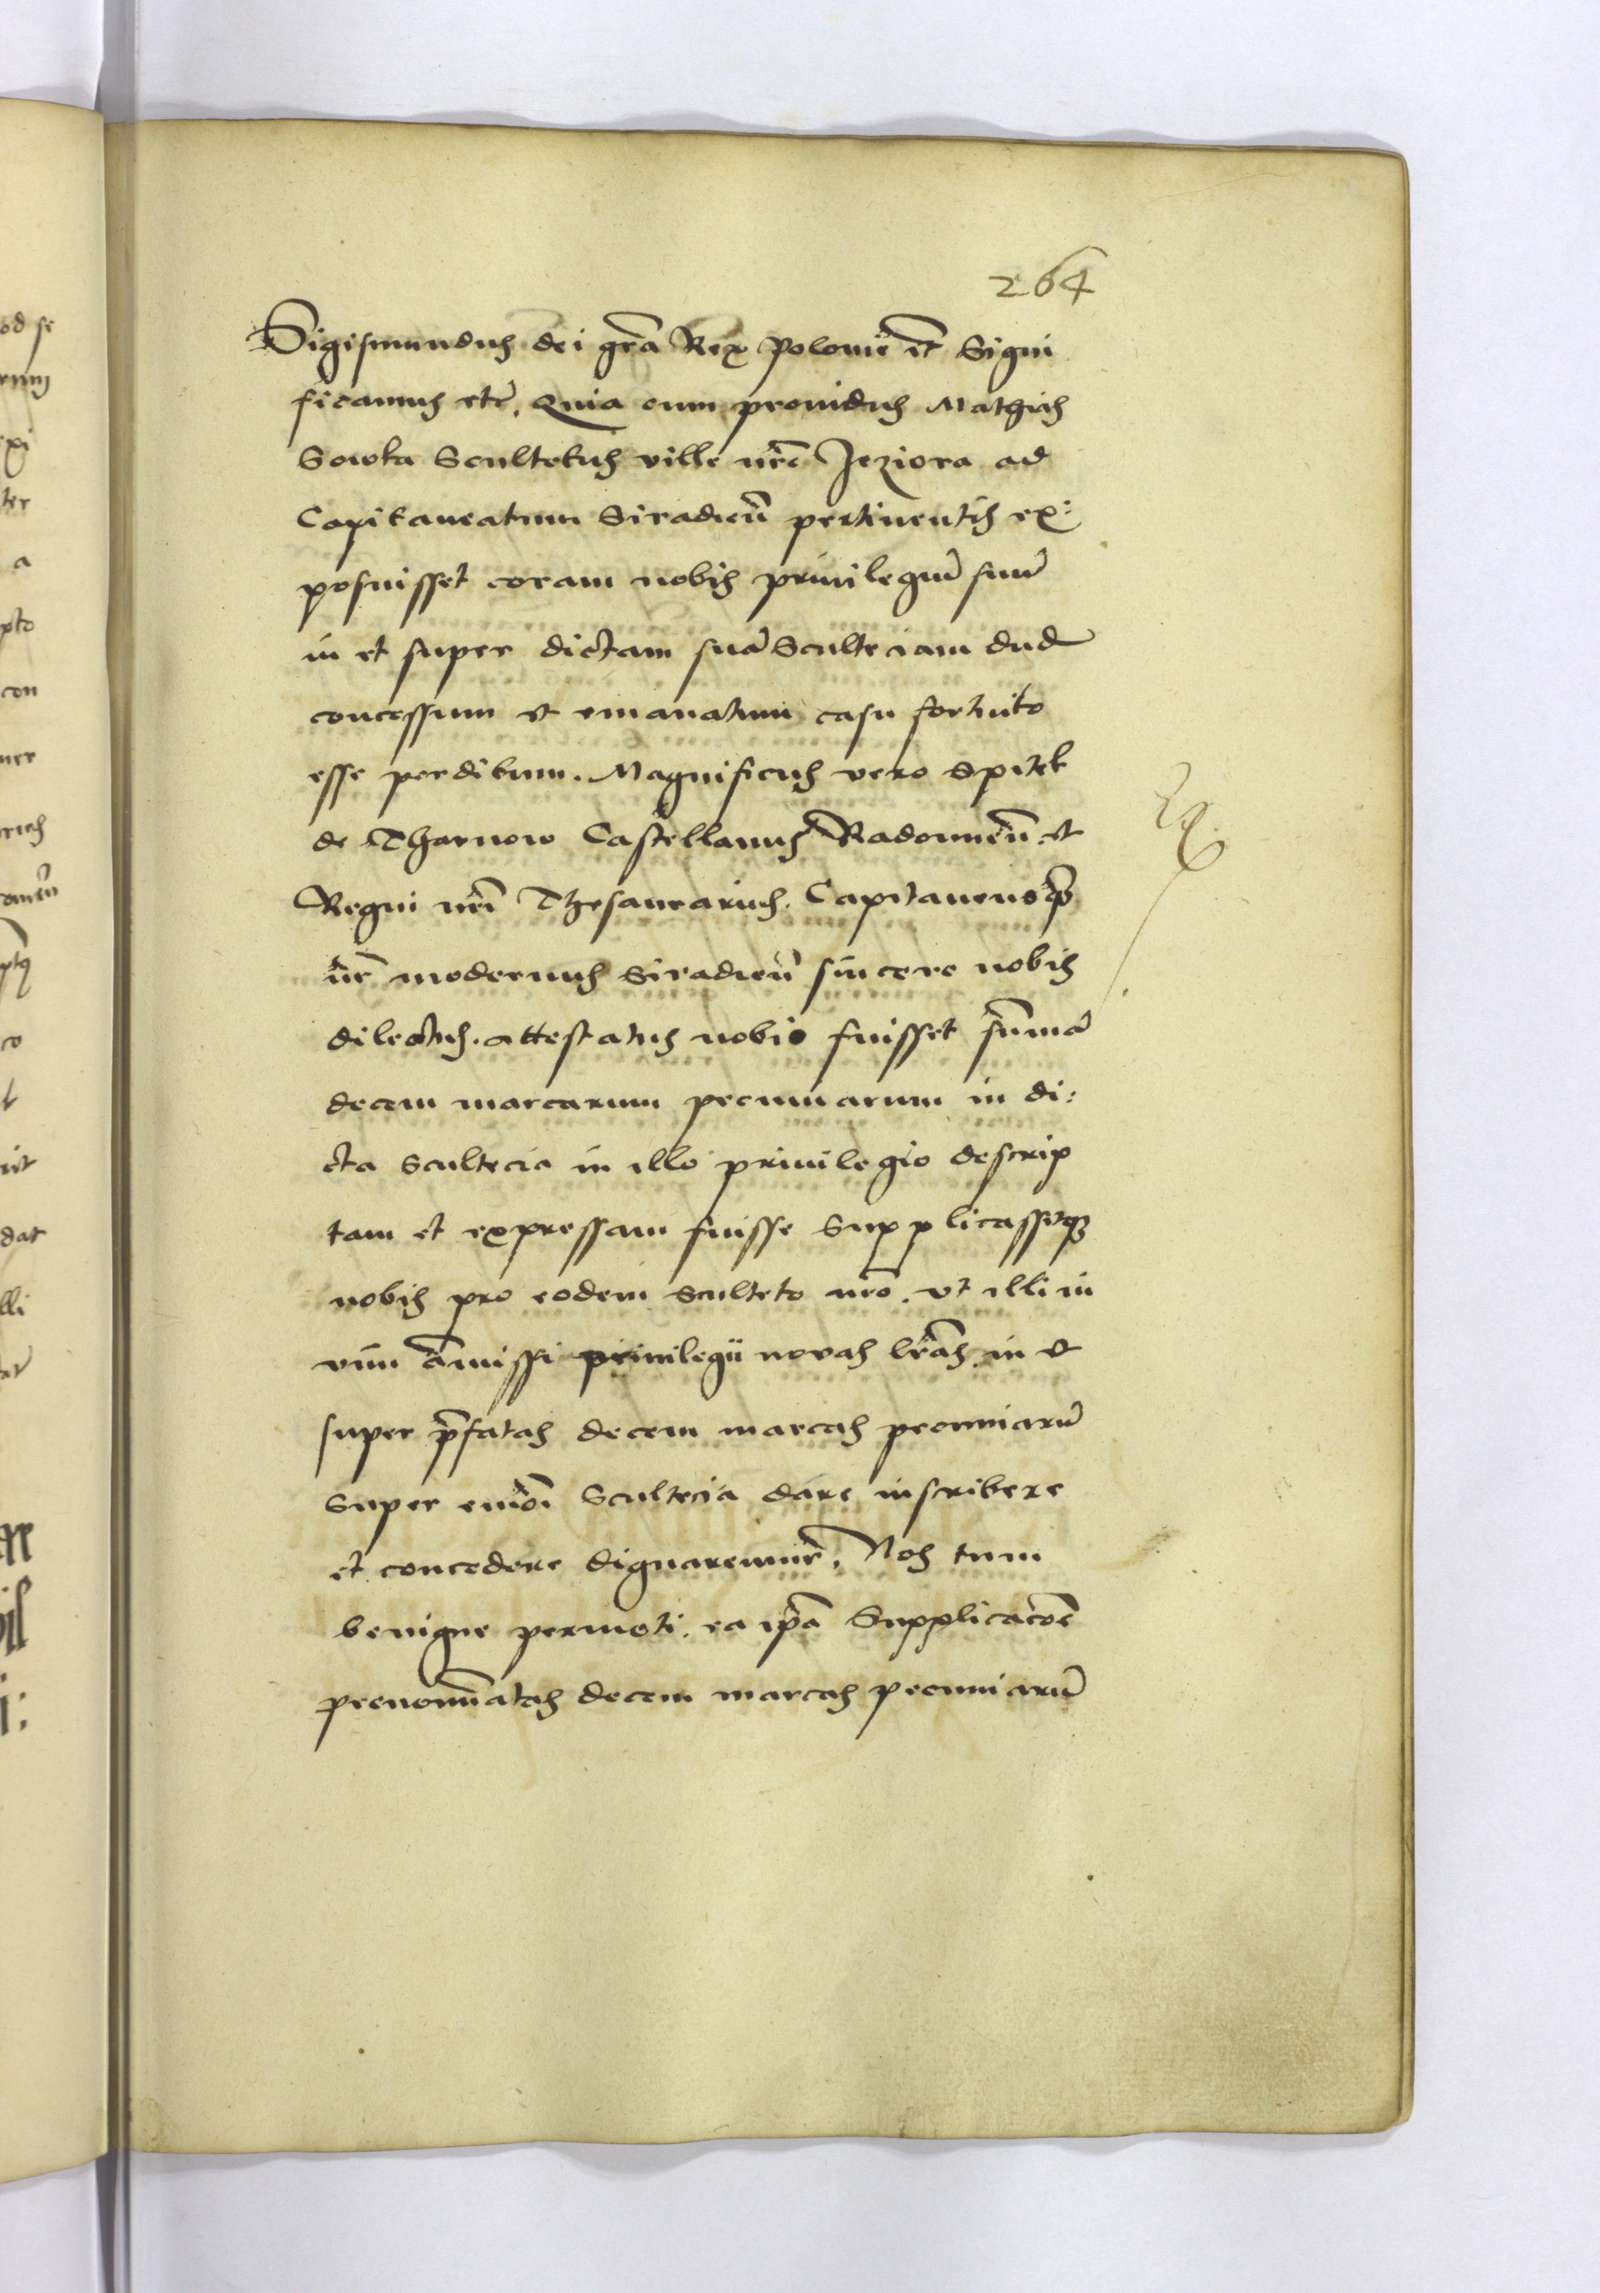 264
Sigismundus dei gr̄a Rex Polonie etc̄ Signi
ficamus etc̄. Quia cum prouidus Mathias
Sowka Scultetus ville nr̄e Jeziora ad
Capitaneatum Siradieñ pertinentis ex:
posuisset coram nobis priuilegiū suū
in et super dictam suā Sculteciam dud
concessum et emanatum casu fortuito
esse perditum. Magnificus vero Spitek
de Tharnow Castellanus Radomieñ. et
Regni nr̄i Thesaurarius. Capitaneusq̄
nr̄ modernus Siradieñ sincere nobis
dilectus. attestatus nobis fuisset sūmā
decem marcarum pecuniarum in di:
cta scultecia in illo priuilegio descrip
tam et expressam fuisse Supplicassetq
nobis pro eodem sculteto nr̄o. vt illi in
vim āmissi priuilegii novas lr̄as in et
super p̄fatas decem marcas pecuniarū
Super eiūdi Scultecia dare inscribere
et concedere dignaremur̄. Nos tum
benigne permoti. ea ip̄a Supplicacōe
prenom̄iatas decem marcas pecuniarū